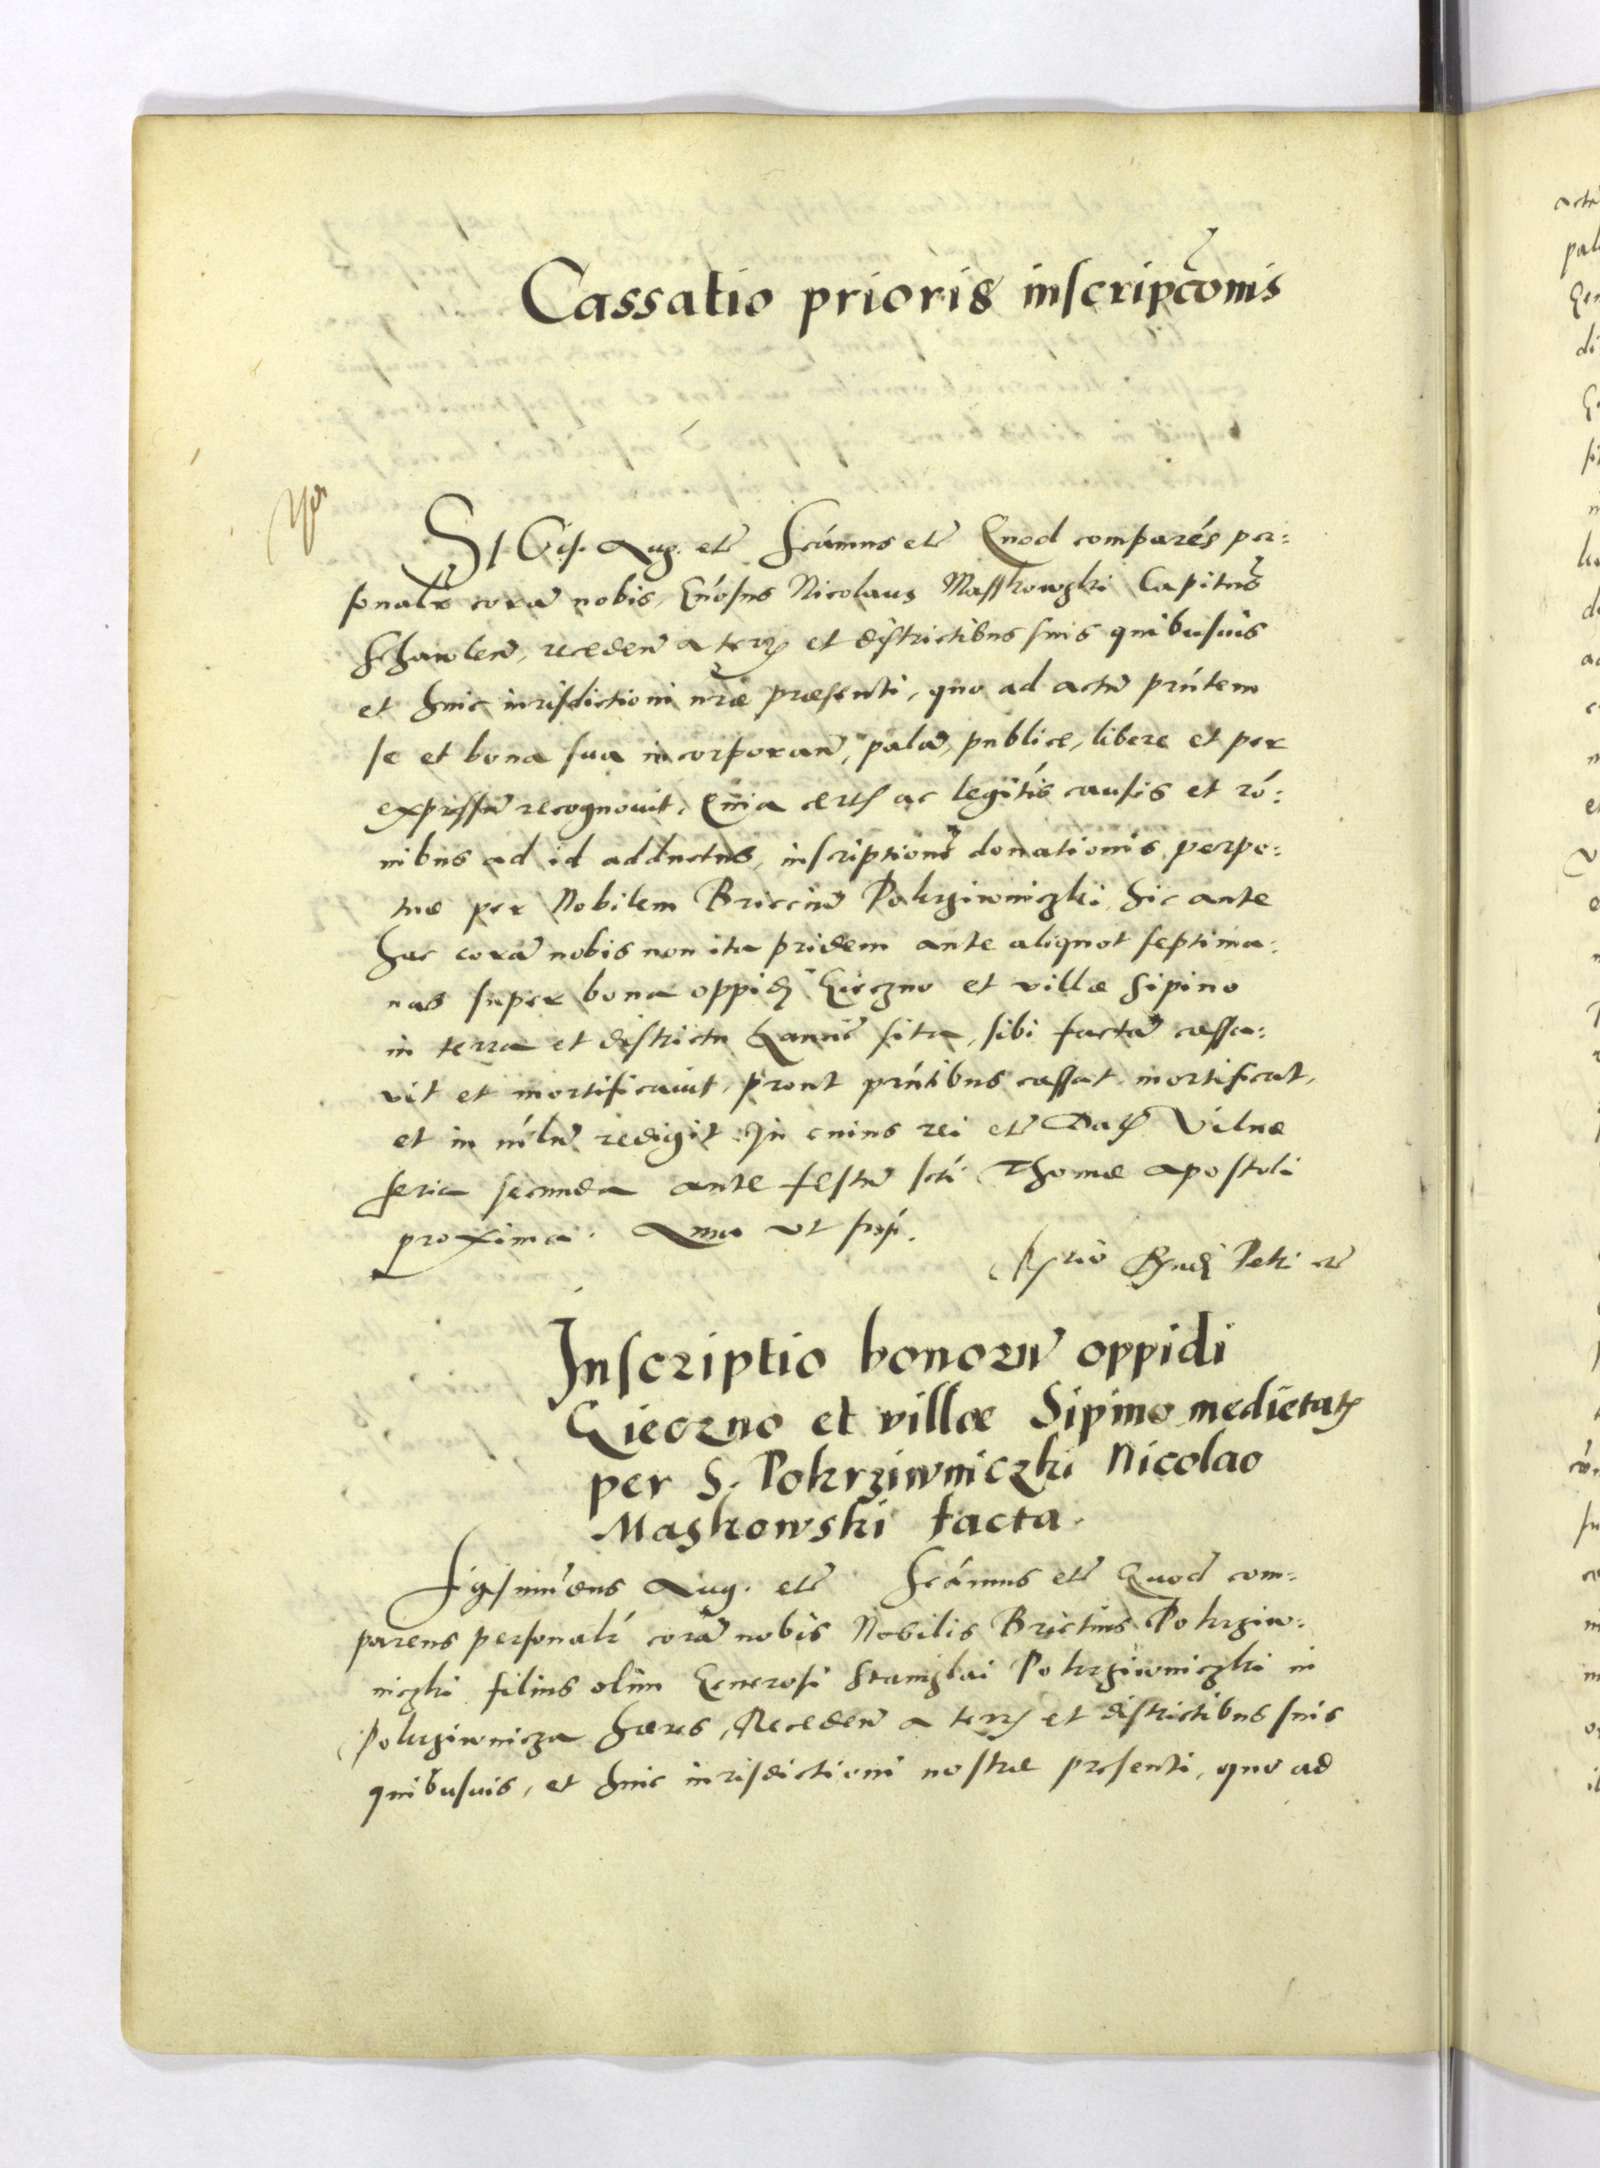 Cassatio prioris inscripc̃onis
Sigis. Aug. etc̃ Scámus etc̃ Quod comparés per:
sonalr̃ corã nobis, Gńosus Nicolaus Masskowski Capitñs
Schawleñ, recedeñ a terris et districtibus suis quibusuis
et huic iurisdictioni nr̃æ præsenti, quo ad actũ prńtem
se et bona sua incorporañ, palã, publice, libere et per
expressũ recognouit, Quia certis ac legitís causis et ró:
nibus ad id adductus, inscriptionẽ donationis perpe:
tuæ per Nobilem Bricciũ Pokrziwniczki hic ante
hac corã nobis non ita pridem ante aliquot septima:
nas super bona oppidi Gieczno et villæ Sipino
in terra et districtu Lancic̃ sita, sibi factã cassa:
vit et mortificauit, prout prńtibus cassat, mortificat,
et in níłũ redigit. In cuius rei etc̃ Datis Vilnæ
feria secunda ante festũ scti Thomæ apostoli
proxima. Anno vt supr.
Rndi Petri etc̃
Inscriptio bonorũ oppidi
Gieczno et villæ Sipino medietatis
per S. Pokrziwniczki Nicolao
Maskowski facta.
Sigismũdus Aug. etc̃ Scámus etc̃ Quod com:
parens personalr̃ corã nobis Nobilis Brictius Pokrziw:
niczki filius olim Generosi Stanislai Pokrziwniczki in
Pokrziwnicza hæres, Recedeñ a terris et districtibus suis
quibusuis, et huic iurisdictioni nostræ presenti, quo ad